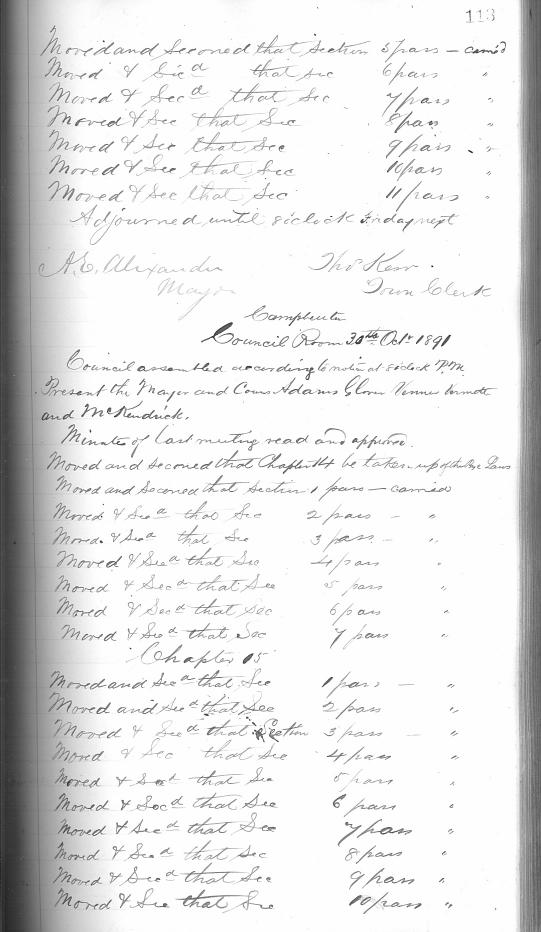 113
Moved and Seconed that Section 5 pass — carried
Moved & Sec d that sec 6 pass "
Moved & Sec d that Sec 7 pass "
Moved & Sec that Sec 8 pass "
Moved & Sec that Sec 9 pass "
Moved & Sec that Sec 10 pass "
Moved & Sec that Sec 11 pass "
Adjourned until 8 oclock Friday next
A.E. Alexander Thos Kerr.
Mayor Town Clerk
Campbellton
Council Room 30th Octr 1891
Council assembled according to notice at 8 oclock P.M.
Present the Mayor and Couns Adams Glover Venner
and McKendrick.
Minutes of last meeting read and approved.
Moved and seconed that Chapter 14 be taken up of the Bye Laws
Moved and Seconed that section 1 pass — carried
Moved & Sec d that Sec 2 pass — "
Moved & Sec d that Sec 3 pass — "
Moved & Sec d that Sec 4 pass "
Moved & Sec d that Sec 5 pass "
Moved & Sec d that Sec 6 pass "
Moved & Sec d that Sec 7 pass "
Chapter 15
Moved and Sec d that Sec 1 pass — "
Moved and Sec d that Sec 2 pass "
Moved & Sec d that Section 3 pass — "
Moved & Sec that Sec 4 pass "
Moved & Sec d that Sec 5 pass "
Moved & Sec d that Sec 6 pass "
Moved & Sec d that Sec 7 pass "
Moved & Sec d that Sec 8 pass "
Moved & Sec d that Sec 9 pass "
Moved & Sec that Sec 10 pass "